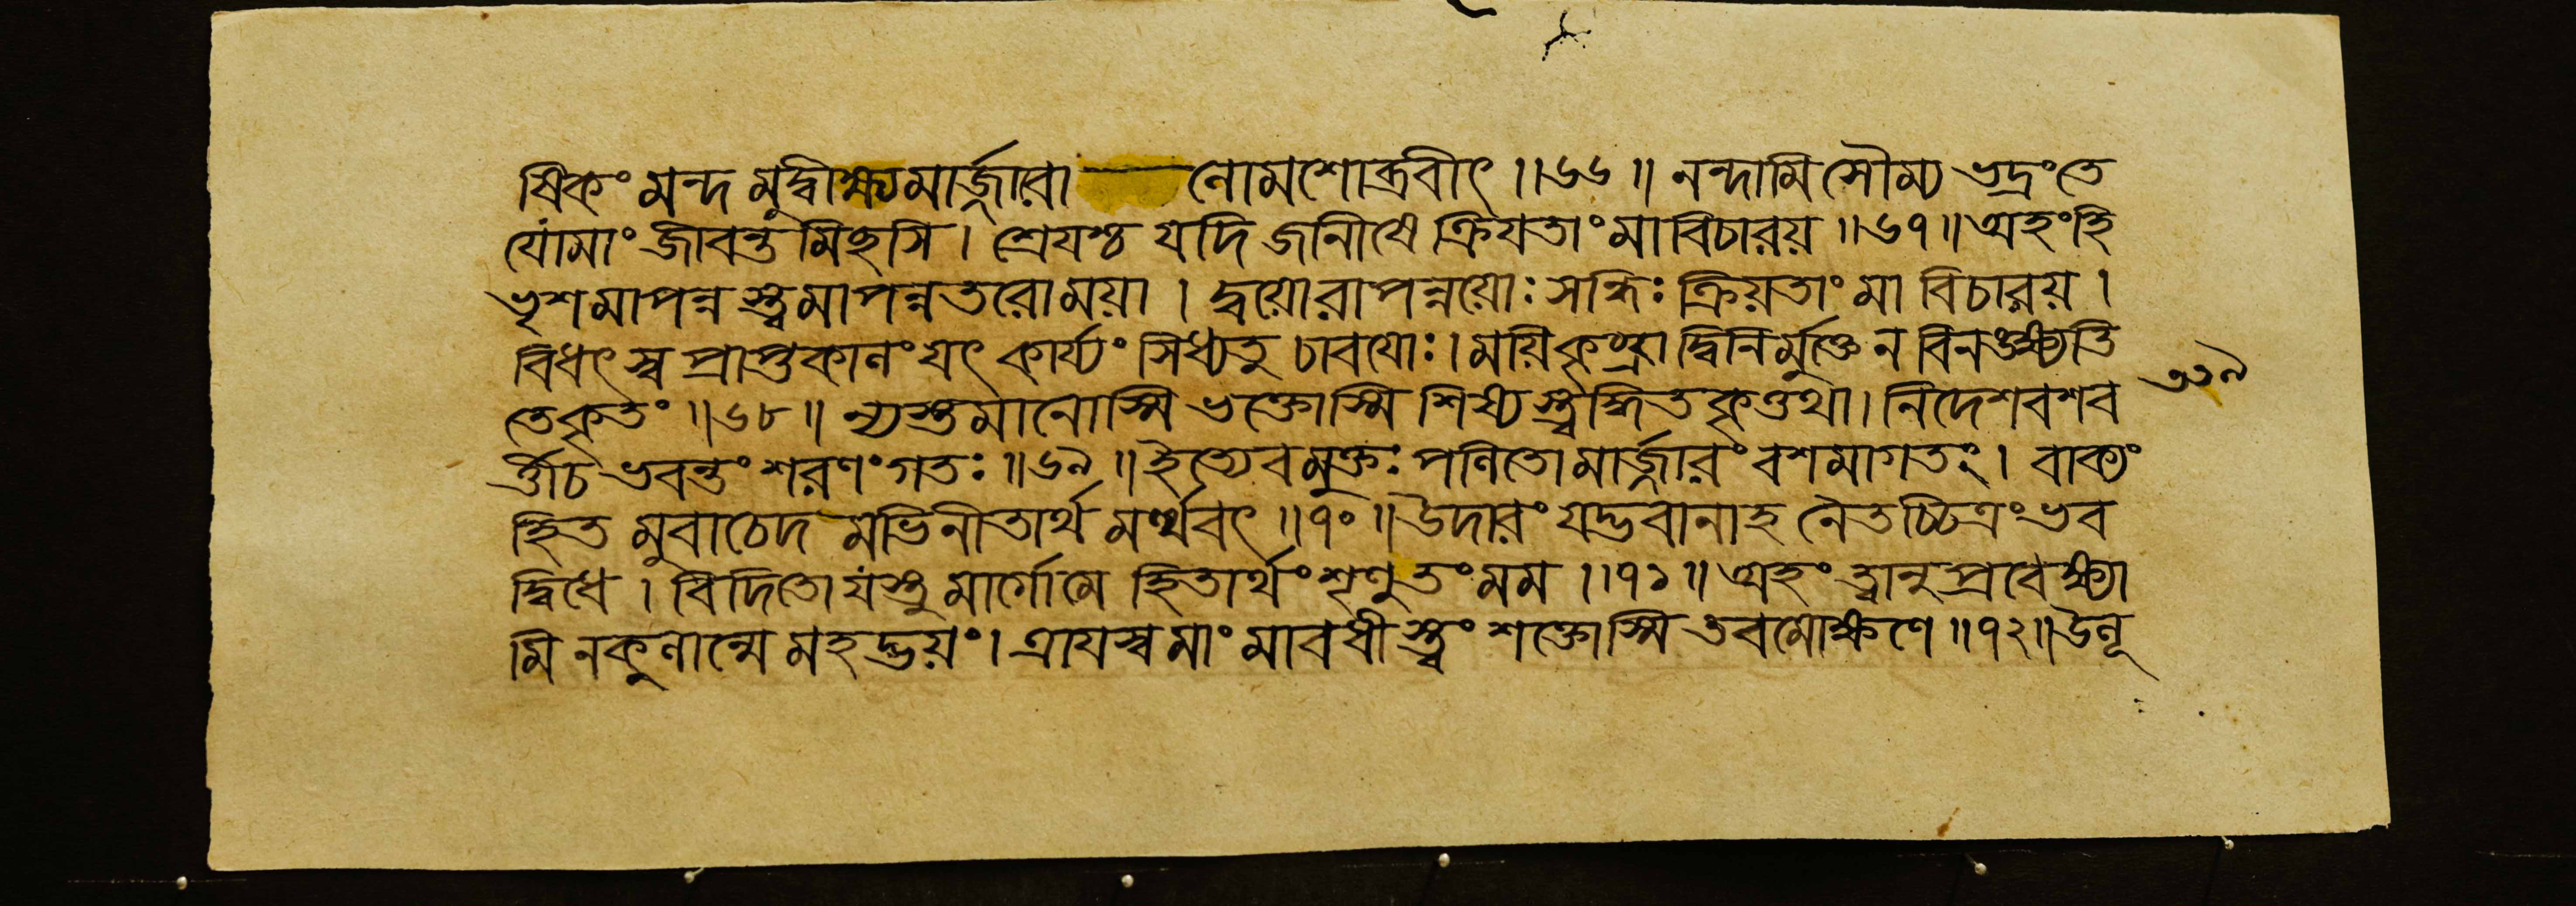 ষিকং মন্দ মুদ্বীক্ষ্যমার্জ্জারা — নোমশোব্রবীৎ ॥৬৬॥ নন্দামি সৌম্য ভদ্রংতে
যোমাং জীবন্ত মিছসি । শ্রেযশ্চ যদি জানীষে ক্রিযতাং মাবিচারয় ॥৬৭॥ অহংহি
ভৃশমাপন্ন স্ত্বমাপন্নতরোময়া । দ্বয়োরাপন্নয়োঃ সন্ধিঃ ক্রিয়তাং মা বিচারয় ।
বিধৎস্ব প্রাপ্তকানং যৎ কার্য্যং সিধ্যতু চাবযোঃ । ময়িকৃচ্ছ্রা দ্বিনির্মুক্তে ন বিনঙক্ষ্যতি
তেকৃতং ॥৬৮॥ ন্যস্তমানোস্মি ভক্তোস্মি শিষ্য স্ত্বদ্ধিতকৃত্তথা । নিদেশবশব
র্ত্তীচ ভবন্তং শরণং গতঃ ॥৬৯॥ ইত্যেবমুক্তঃ পণিতোমার্জ্জারং বশমাগতং । বাক্যং
হিত মুবাচেদ মভিনীতার্থ মর্থবৎ ॥৭০॥ উদারং যদ্ভবানাহ নৈতচ্চিত্রং ভব
দ্বিধে । বিদিতো যস্তু মার্গোমে হিতার্থং শৃণু তং মম ॥৭১॥ অহং ত্বানুপ্রবেক্ষ্যা
মি নকুনান্মে মহদ্ভয়ং । ত্রাযস্বমাং মাবধী স্ত্বং শক্তোস্মি তবমোক্ষণে ॥৭২॥ উনূ